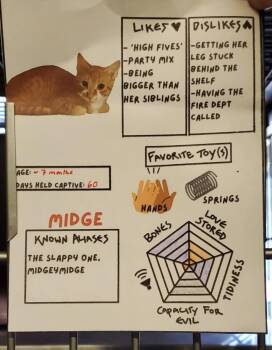 LIKES ♥
- 'HIGH FIVES'
- PARTY MIX
- BEING
BIGGER THAN
HER SIBLINGS
DISLIKES
- GETTING HER
LEG STUCK
BEHIND THE
SHELF
- HAVING THE
FIRE DEPT
CALLED
AGE: ~ 7 months
DAYS HELD CAPTIVE: 60
FAVORITE TOY(S)
HANDS
SPRINGS
MIDGE
KNOWN ALIASES
THE SLAPPY ONE,
MIDGEYMIDGE
BONES
LOVE
STORED
TIDINESS
CAPACITY FOR
EVIL